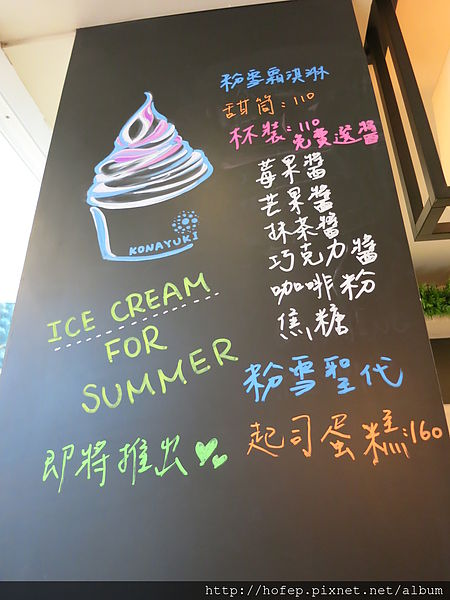 粉雪霜淇淋
甜筒：110
杯裝：110
免費選醬
莓果醬
芒果醬
抹茶醬
巧克力醬
咖啡粉
焦糖
粉雪聖代
起司蛋糕:160
KONAYUKI
ICE CREAM
FOR
SUMMER
即將推出
http://hofep.pixnet.net/album